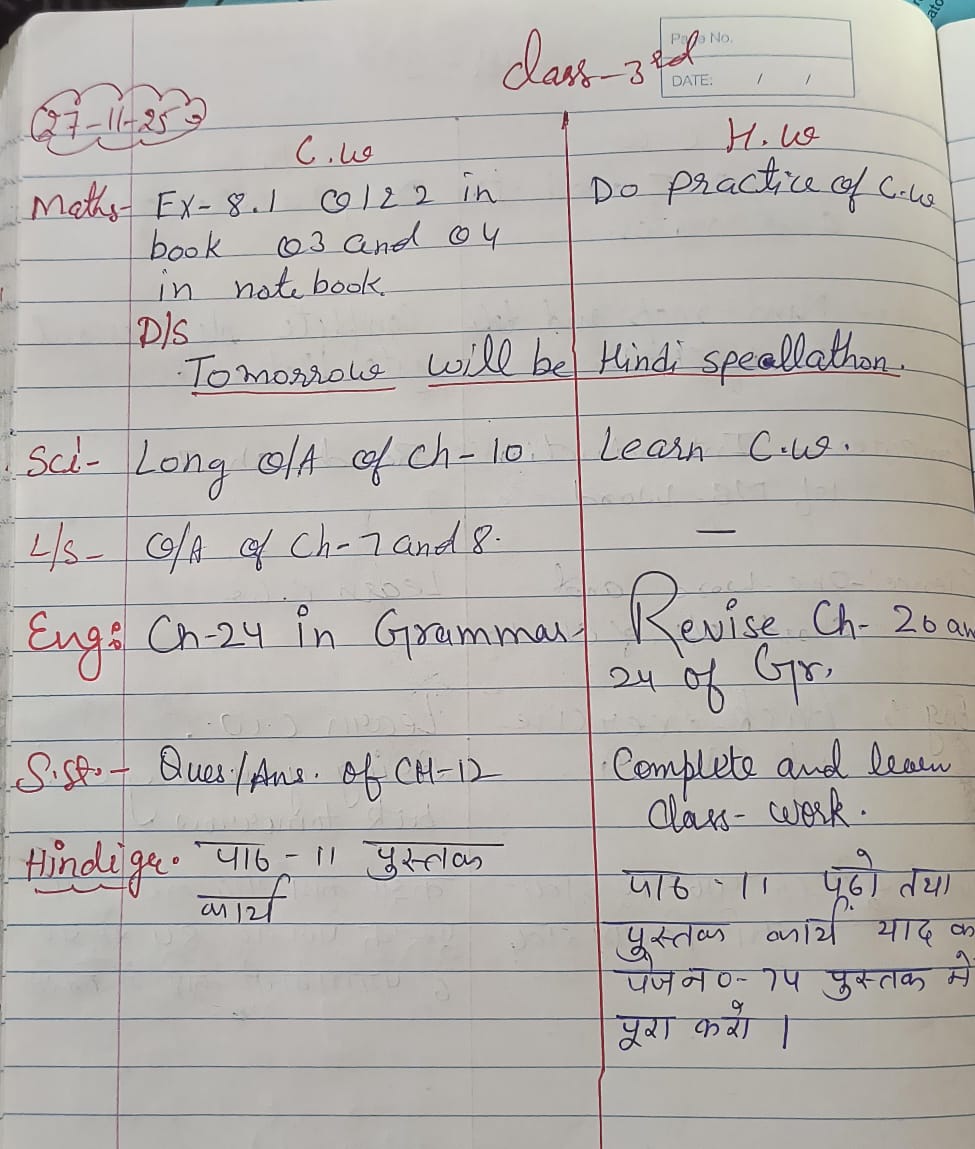 Class-3rd
Page No.
DATE: / /
27-11-25
C.w
H.w
Maths- Ex-8.1 Q1&2 in
Do practice of C.w
book Q3 and Q4
in notebook.
D/S
Tomorrow will be Hindi speallathon.
Sci- Long Q/A of Ch-10.
Learn C.w.
L/S- Q/A of Ch-7 and 8.
—
Eng: Ch-24 in Grammar-
Revise Ch-20 an
24 of Gr.
S.st.- Ques./Ans. of CH-12
Complete and learn
Class-work.
Hindi gr. पाठ-11 पुस्तक
कार्य
पाठ-11 पढ़ो तथा
पुस्तक कार्य याद क
पेज न०-74 पुस्तक में
पूरा करो।